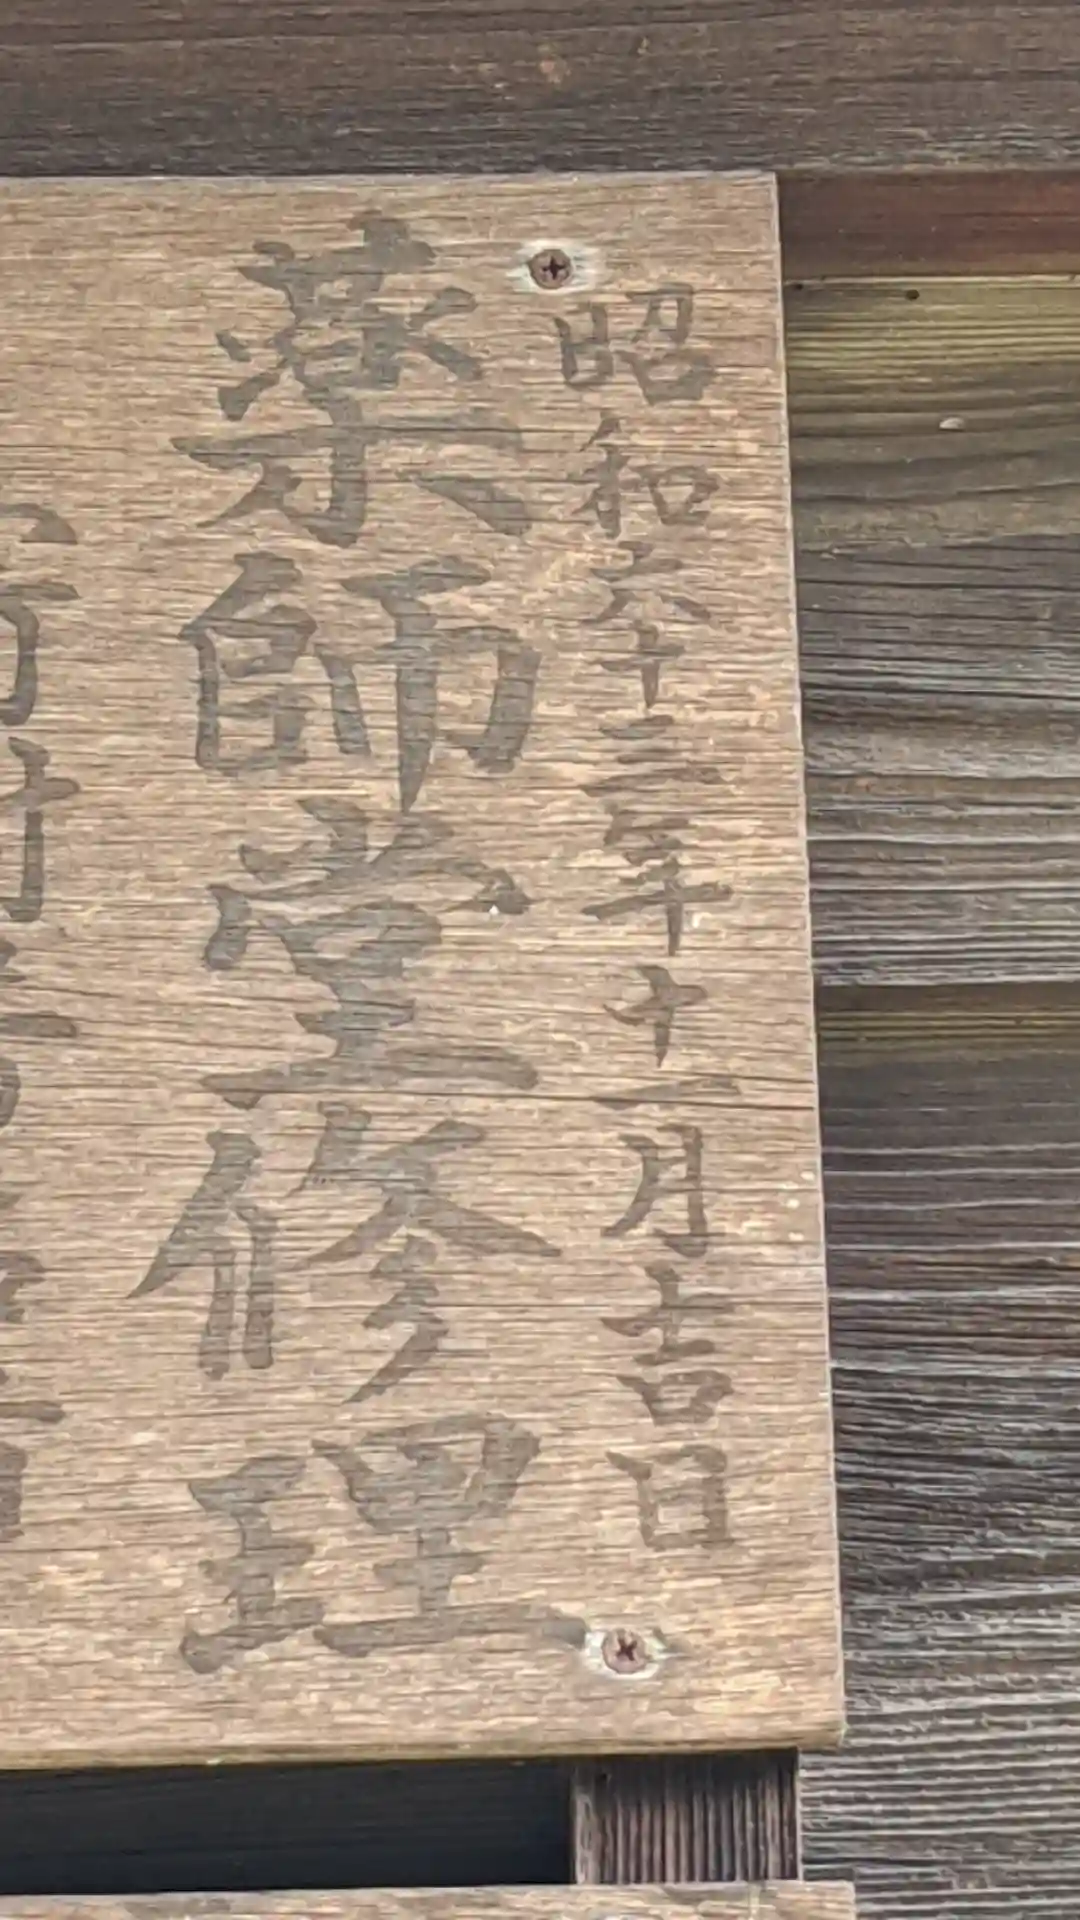 昭和六十三年十一月吉日
薬師堂修理